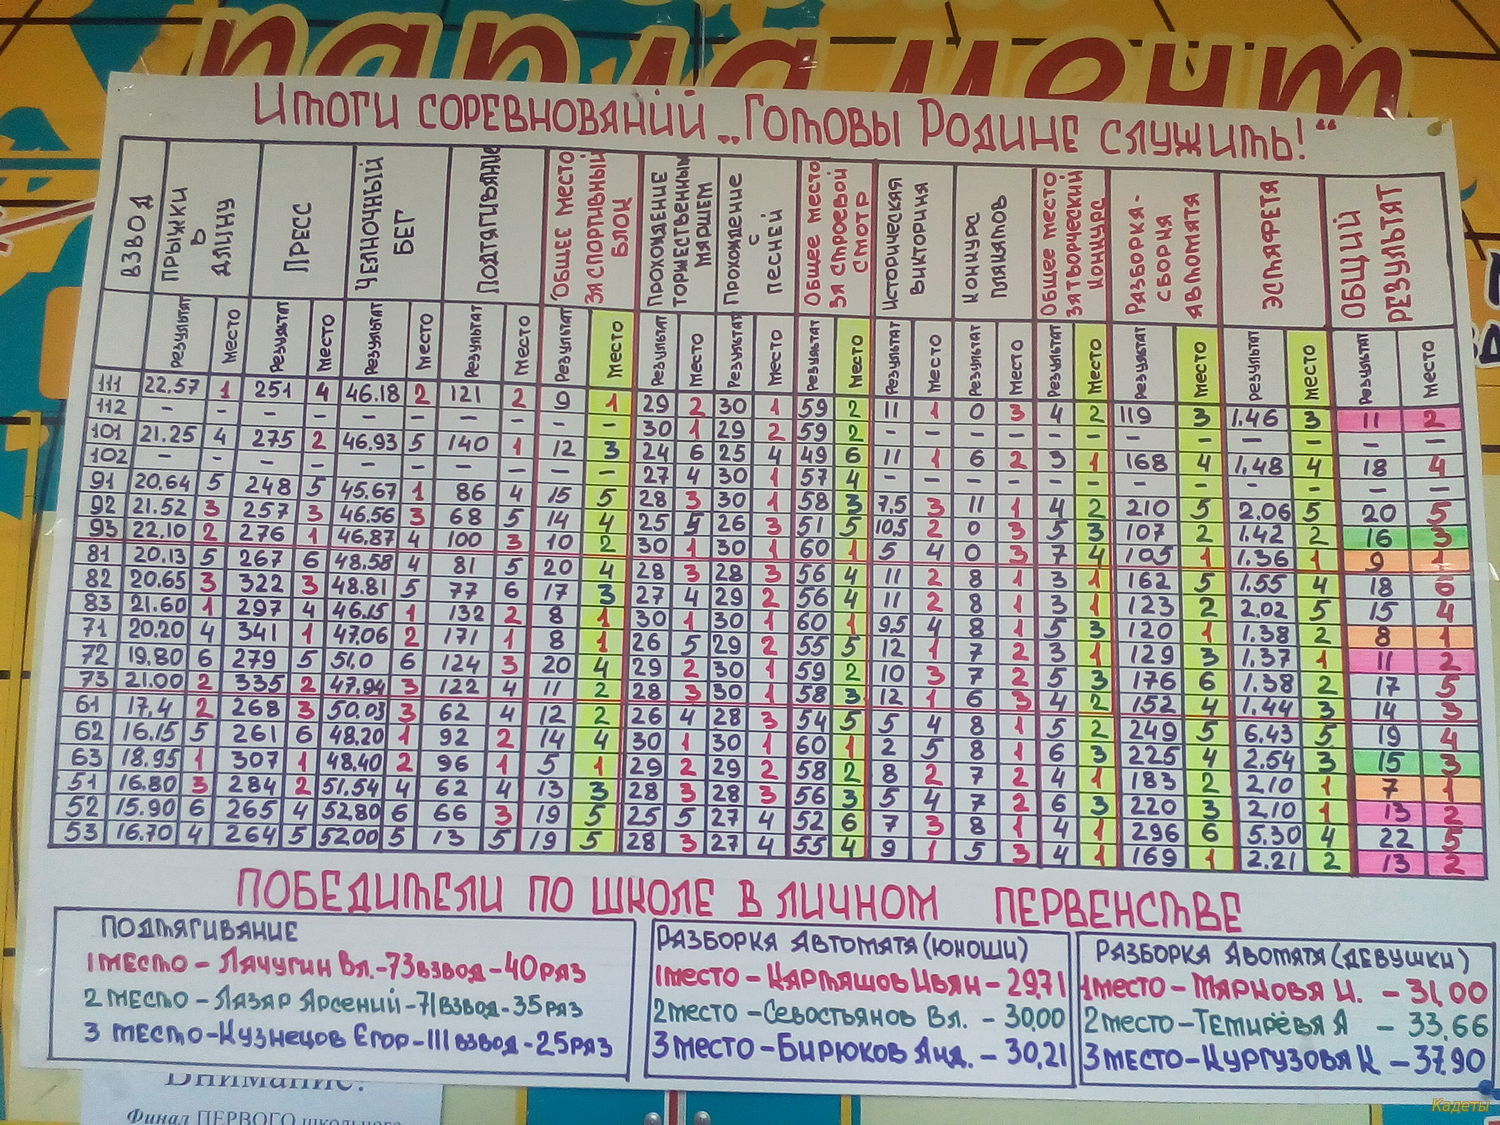 парламент
Итоги соревнований „Готовы Родине служить!“
Взвод Прыжки в длину Пресс Челночный бег Подтягивание Общее место за спортивный блок Прохождение торжественным маршем Прохождение с песней Общее место за строевой смотр Историческая викторина Конкурс плакатов Общее место за творческий конкурс Разборка-сборка автомата Эстафета Общий результат
Результат Место Результат Место Результат Место Результат Место Результат Место Результат Место Результат Место Результат Место Результат Место Результат Место Результат Место Результат Место Результат Место Результат Место
111 22.57 1 251 4 46.18 2 121 2 9 1 29 2 30 1 59 2 11 1 0 3 4 2 119 3 1.46 3 11 2
112 – – – – – – – – – – 30 1 29 2 59 2 – – – – – – – – – – – –
101 21.25 4 275 2 46.93 5 140 1 12 3 24 6 25 4 49 6 11 1 6 2 3 1 168 4 1.48 4 18 4
102 – – – – – – – – – – 27 4 30 1 57 4 – – – – – – – – – – – –
91 20.64 5 248 5 45.67 1 86 4 15 5 28 3 30 1 58 3 7.5 3 11 1 4 2 210 5 2.06 5 20 5
92 21.52 3 257 3 46.56 3 68 5 14 4 25 5 26 3 51 5 10.5 2 0 3 5 3 107 2 1.42 2 16 3
93 22.10 2 276 1 46.87 4 100 3 10 2 30 1 30 1 60 1 5 4 0 3 7 4 105 1 1.36 1 9 1
81 20.13 5 267 6 48.58 4 81 5 20 4 28 3 28 3 56 4 11 2 8 1 3 1 162 5 1.55 4 18 6
82 20.65 3 322 3 48.81 5 77 6 17 3 27 4 29 2 56 4 11 2 8 1 3 1 123 2 2.02 5 15 4
83 21.60 1 297 4 46.15 1 132 2 8 1 30 1 30 1 60 1 9.5 4 8 1 5 3 120 1 1.38 2 8 1
71 20.20 4 341 1 47.06 2 171 1 8 1 26 5 29 2 55 5 12 1 7 2 3 1 129 3 1.37 1 11 2
72 19.80 6 279 5 51.0 6 124 3 20 4 29 2 30 1 59 2 10 3 7 2 5 3 176 6 1.38 2 17 5
73 21.00 2 335 2 47.94 3 122 4 11 2 28 3 30 1 58 3 12 1 6 3 4 2 152 4 1.44 3 14 3
61 17.4 2 268 3 50.03 3 62 4 12 2 26 4 28 3 54 5 5 4 8 1 5 2 249 5 6.43 5 19 4
62 16.15 5 261 6 48.20 1 92 2 14 4 30 1 30 1 60 1 2 5 8 1 6 3 225 4 2.54 3 15 3
63 18.95 1 307 1 48.40 2 96 1 5 1 29 2 29 2 58 2 8 2 7 2 4 1 183 2 2.10 1 7 1
51 16.80 3 284 2 51.54 4 62 4 13 3 28 3 28 3 56 3 5 4 7 2 6 3 220 3 2.10 1 13 2
52 15.90 6 265 4 52.80 6 66 3 19 5 25 5 27 4 52 6 7 3 8 1 4 1 296 6 5.30 4 22 5
53 16.70 4 264 5 52.00 5 13 5 19 5 28 3 27 4 55 4 9 1 5 3 4 1 169 1 2.21 2 13 2
Победители по школе в личном первенстве
Подтягивание
1 место – Лячугин Вл. – 73 взвод – 40 раз
2 место – Лазар Арсений – 71 взвод – 35 раз
3 место – Кузнецов Егор – 111 взвод – 25 раз
Разборка автомата (юноши)
1 место – Карташов Иван – 29,71
2 место – Севостьянов Вл. – 30,00
3 место – Бирюков Анд. – 30,21
Разборка автомата (девушки)
1 место – Маркова И. – 31,00
2 место – Темирёва А – 33,66
3 место – Кургузова К – 37,90
Внимание!
Финал ПЕРВОГО школьного
Кадеты